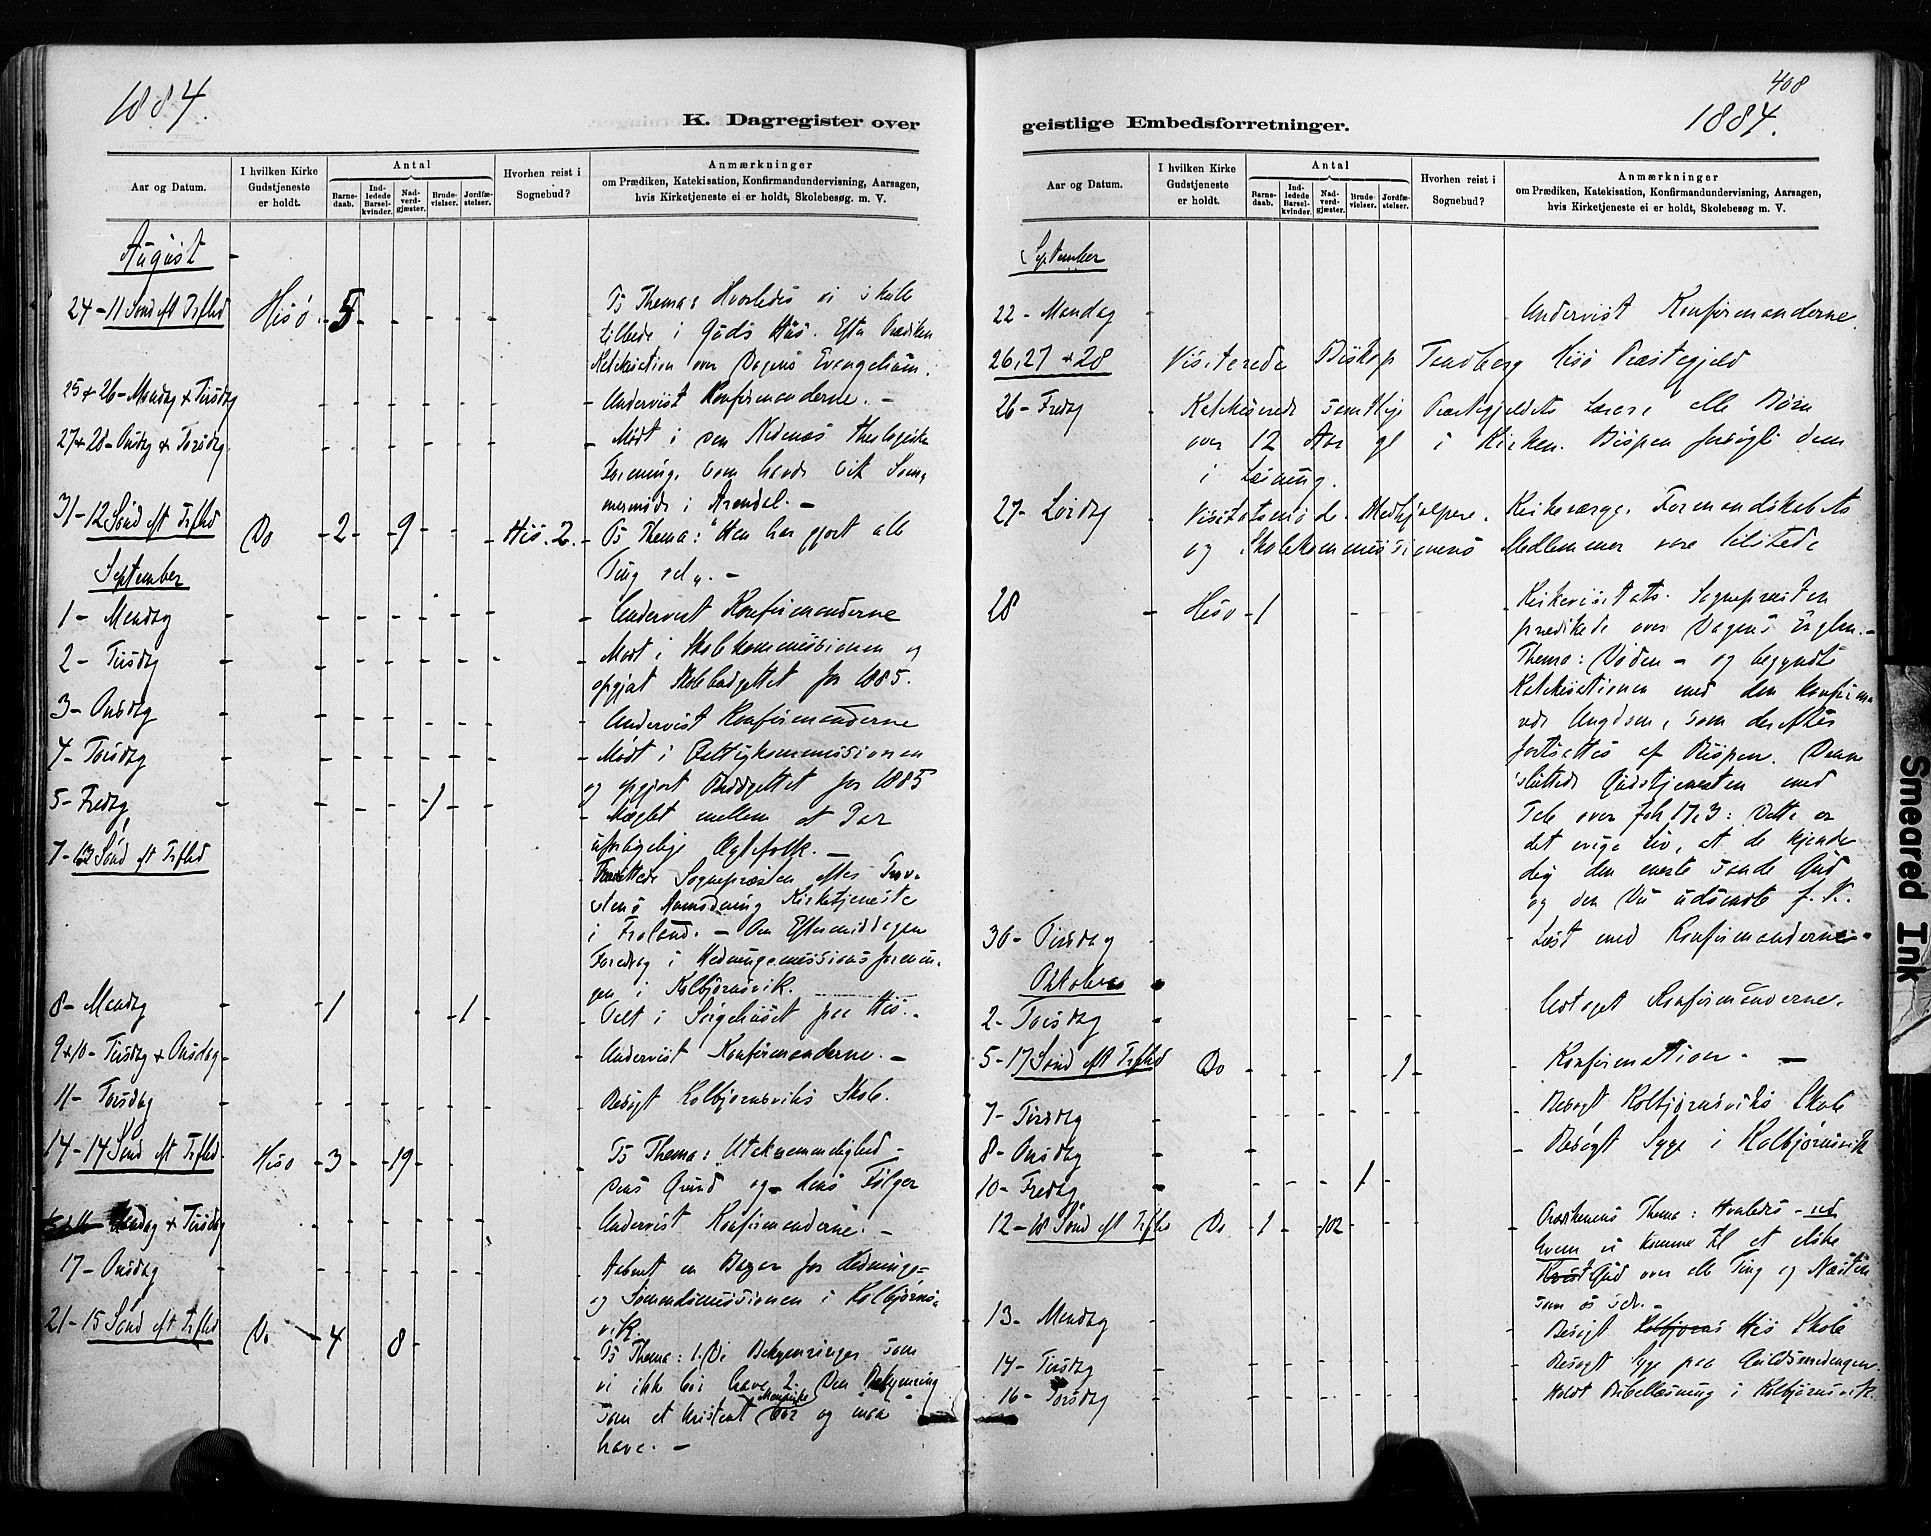 1884.
K. Dagregister over
Aar og Datum.
I hvilken Kirke Gudstjeneste er holdt.
Antal
Barne-daab.
Ind-ledede Barsel-kvinder.
Nad-verd-gjæster.
Brude-vielser.
Jordfæ-stelser.
Hvorhen reist i Sognebud?
Anmærkninger
om Prædiken, Katekisation, Konfirmandundervisning, Aarsagen,
hvis Kirketjeneste ei er holdt, Skolebesøg. m. V.
August
24 - 11 Sønd eft Trftid Hisø 5 Ts Thema: Hvorledes vi skulle
tilbede i Guds Hus. Efter Prædiken
Katekisation over Dagens Evangelium.
25 + 26 - Mandag + Tirsdag Undervist Konfirmanderne. -
27 + 28 - Onsdag + Torsdag Mødt i den Nedenes theologiske
Forening, som havde sit Som-
mermøde i Arendal. -
31 - 12 Sønd eft Trftid Do 2 9 Hisø. 2. Ts Thema: "Han har gjort alle
Ting vel". -
September
1 - Mandag Undervist Konfirmanderne
2 - Tirsdag Mødt i Skolekommissionen og
opgjort Skolebudgettet for 1885.
3 - Onsdag Undervist Konfirmanderne
4 - Torsdag Mødt i Fattigkommissionen
og opgjort Buddgettet for 1885
5 - Fredag 1 Mæglet mellem et Par
uforligelige Ægtefolk. -
7 - 13 Sønd eft Trftid Forrettede Sognepræsten efter Prov-
stens Anmodning Kirketjeneste
i Froland. - Om Eftermiddagen
Foredrag i Hedningemissionsforenin-
gen i Kolbjørnsvik.
8 - Mandag 1 1 Talt i Sørgehuset paa Hisø. -
9 + 10 - Tirsdag + Onsdag - Undervist Konfirmanderne. -
11 - Torsdag Besøgt Kolbjørnsviks Skole.
14 - 14 Sønd eft Trftid. Hisø 3 19 Ts Thema: Utaknemmelighed -
dens Grund og dens Følger
Mandag + Tirsdag Undervist Konfirmanderne. -
17 - Onsdag Aabnet en Bazar for Hednings-
og Sømandsmissionen i Kolbjørns-
vik.
21 - 15 Sønd eft Trftid Do 4 8 Ts Thema: 1. De Bekymringer som
vi ikke bør have 2. Den Bekymring
som et kristent Menneske bør og maa
have. -
408
1884.
geistlige Embedsforretninger.
Aar og Datum.
I hvilken Kirke Gudstjeneste er holdt.
Antal
Barne-daab.
Ind-ledede Barsel-kvinder.
Nad-verd-gjæster.
Brude-vielser.
Jordfæ-stelser.
Hvorhen reist i Sognebud?
Anmærkninger
om Prædiken, Katekisation, Konfirmandundervisning, Aarsagen,
hvis Kirketjeneste ei er holdt, Skolebesøg m. V.
September
22 - Mandag Undervist Konfirmanderne.
26, 27 + 28 Visiterede Biskop Tandberg Hisø Præstegjeld
26 - Fredag Katekiserede samtlige Præstegjeldets Lærere alle Børn
over 12 Aar gl i Kirken. Bispen forsøgte dem
i Læsning.
27 - Lørdag Visitatsmøde. Medhjelpere. Kirkeværge, Formandskabets
og Skolekommissionens Medlemmer vare tilstede
28 Hisø 1 Kirkevisitats. Sognepræsten
prædikede over Dagens Evglm. -
Thema: Døden - og begyndte
Katekisationen med den konfirme-
rede Ungdom, som derefter
fortsattes af Bispen. Denne
sluttede Gudstjenesten med
Tale over Joh 17, 3: Dette er
det evige Liv, at de kjende
dig den eneste sande Gud
og den Du udsendte J. K.
30 - Tirsdag Læst med Konfirmanderne -
Oktober
2 - Torsdag Udtaget Konfirmanderne.
5 - 17 Sønd eft Trftid Do 1 Konfirmation. -
7 - Tirsdag Besøgt Kolbjørnsviks Skole
8 - Onsdag Besøgt Syge i Kolbjørnsvik
10 - Fredag 1
12 - 18 Sønd eft Trftid Do 1 102 Prædikenens Thema: Hvorledes - ved
hvem vi komme til at elske
Gud over alle Ting og Næsten
som os selv. -
13 - Mandag Besøgt Kolbjørns Hisø Skole
14 - Tirsdag Besøgt Syge paa Guldsmedengen.
16 - Torsdag Holdt Bibellæsning i Kolbjørnsvik.
Smeared Ink